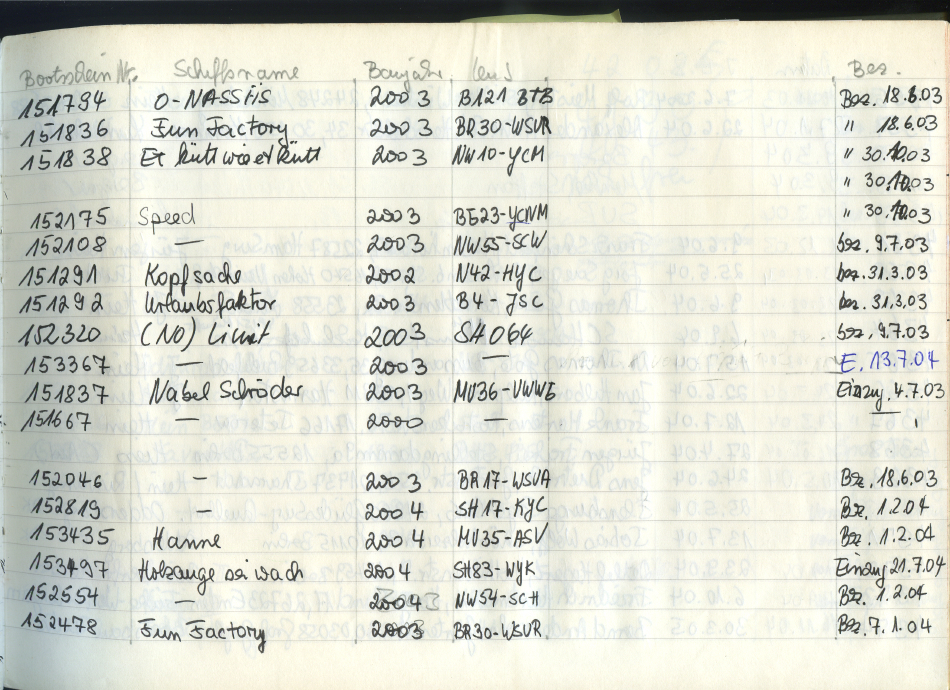 Bootsschein Nr. Schiffsname Baujahr Bez.
151794 O-NASSIS 2003 B121 BTB Bez. 18.6.03
151836 Fun Factory 2003 BR30-WSVR " 18.6.03
151838 Et kütt wie et kütt 2003 NW10-YCM " 30.10.03
" 30.10.03
152175 Speed 2003 BE23-YCNM " 30.10.03
152108 — 2003 NW55-SCW bez. 9.7.03
151291 Kopfsache 2002 N42-HYC bez. 31.3.03
151292 Urlaubsfaktor 2003 B4-JSC bez. 31.3.03
152320 (NO) Limit 2003 SH064 bez. 9.7.03
153367 2003 — E. 13.7.04
151837 Nabel Schröder 2003 MV36-VWWE Einzug. 4.7.03
151667 — 2000 — —
152046 — 2003 BR17-WSVA Bez. 18.6.03
152819 — 2004 SH17-KYC Bez. 1.2.04
153435 Hanne 2004 MV35-ASV Bez. 1.2.04
153497 Holzauge sei wach 2004 SH83-WYK Einzug 21.7.04
152554 — 2004 NW54-SCH Bez. 1.2.04
152478 Fun Factory 2003 BR30-WSVR Bez. 7.1.04